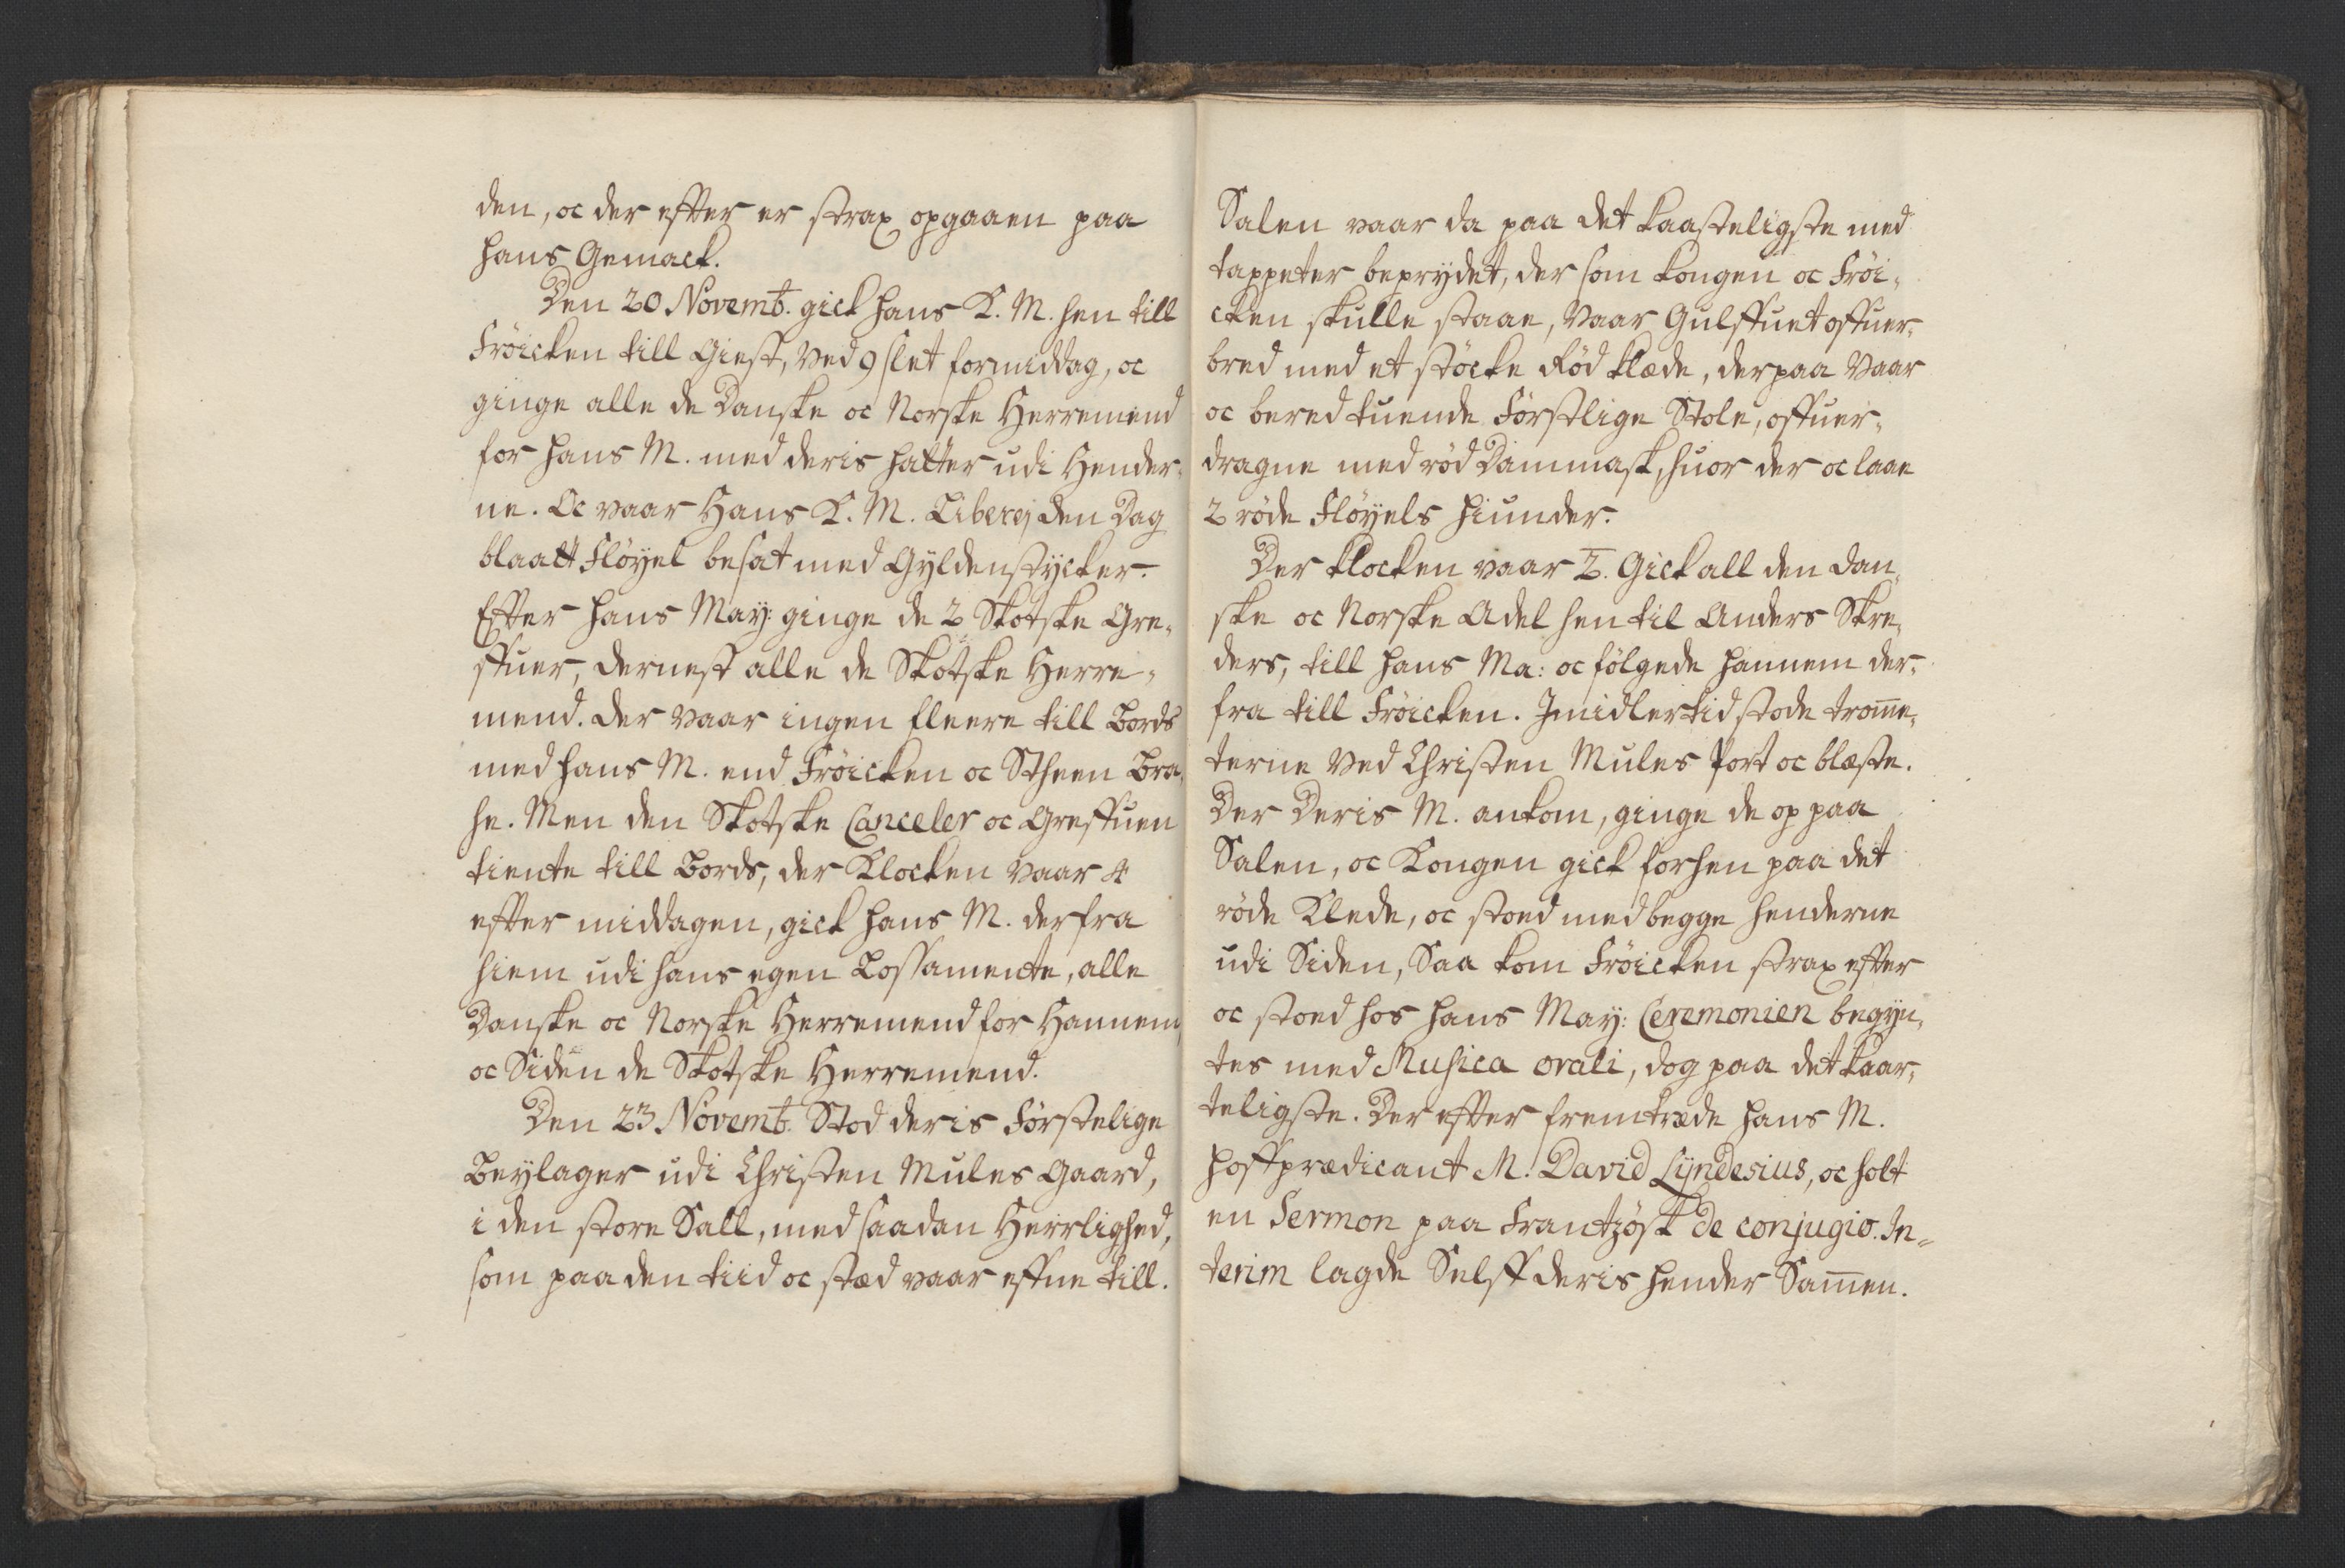 den, oc der effter er strax opgaaen paa
hans Gemack.
Den 20 Novemb. gick hans K. M. hen till
Fröicken till Giest, Ved 9 slet formiddag, oc
ginge alle de Danske oc Norske Herremend
for hans M. med deris hatter udi Hender,
ne. Oc vaar Hans K. M. Liberej den Dag
blaatt Fløyel besat med Gyldenstÿcker.
Effter hans Maÿ: ginge de 2 Skotske Gre,
ffuer, dernest alle de Skotske Herre,
mend. der vaar ingen fleere till Bords
med hans M. end Fröicken oc Stheen Bra,
he. Men den Skotske Canceler oc Greffuen
tiente till Bords, der Klocken vaar 4
effter middagen, gick hans M. derfra
hiem udi hans egen Lossamente, alle
Danske oc Norske Herremend for Hannem,
oc Siden de Skotske Herremend.
Den 23 Novemb. Stod deris Förstelige
Beÿlager udi Christen Mules Gaard,
i den store Sall, med saadan Herrlighed,
som paa den tiid oc stæd vaar effne till.
Salen vaar da paa det kaasteligste med
tappeter beprydet, der som kongen oc Fröi,
cken skulle staae, Vaar Gulffuet offuer,
bred med et støcke Rød klæde, derpaa Vaar
oc bered tuende Förstlige Stole, offuer,
dragne med rød Dammask, huor der oc laae
2 røde Fløÿels hiunder.
Der klocken vaar 2. Gick all den Dan,
ske oc Norske Adel hen til Anders Skre,
ders, till hans Ma: oc fölgede hannem der,
fra till Fröicken. Imidlertid stode trom̄e,
terne Ved Christen Mules Port oc blæste.
Der Deris M. ankom, ginge de op paa
Salen, oc Kongen gick forhen paa det
røde Klede, oc stoed med begge henderne
udi Siden, Saa kom Fröicken strax effter
oc stoed hos hans Maÿ: Ceremonien begÿn,
tes med Musica orali, dog paa det kaar,
teligste. Der effter fremtræde hans M.
hoffprædicant M. David Lÿndesius, oc holt
en Sermon paa Frantzösk de conjugio. In=
terim lagde Selff deris hender Sam̄en.